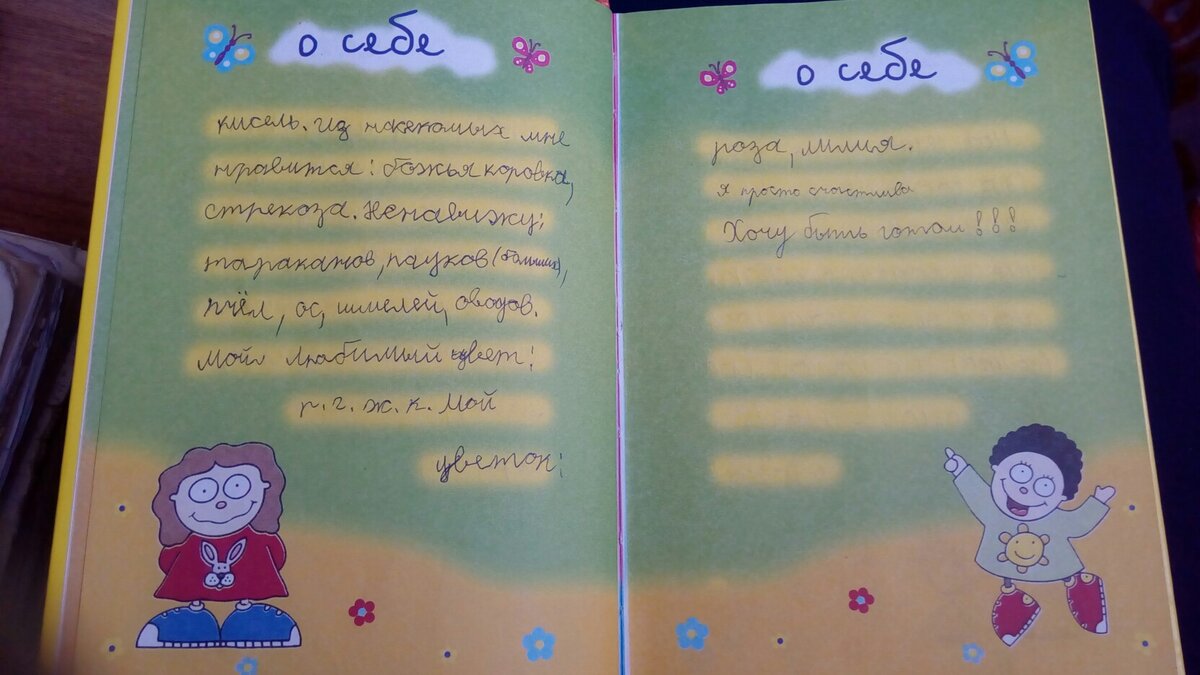 о себе
кисель. Из насекомых мне
нравится: божья коровка,
стрекоза. Ненавижу:
тараканов, пауков (больших),
пчёл, ос, шмелей, оводов.
Мой любимый цвет:
р. г. ж. к. Мой
цветок:
о себе
роза, лилия.
Я просто счастлива
Хочу быть готом!!!